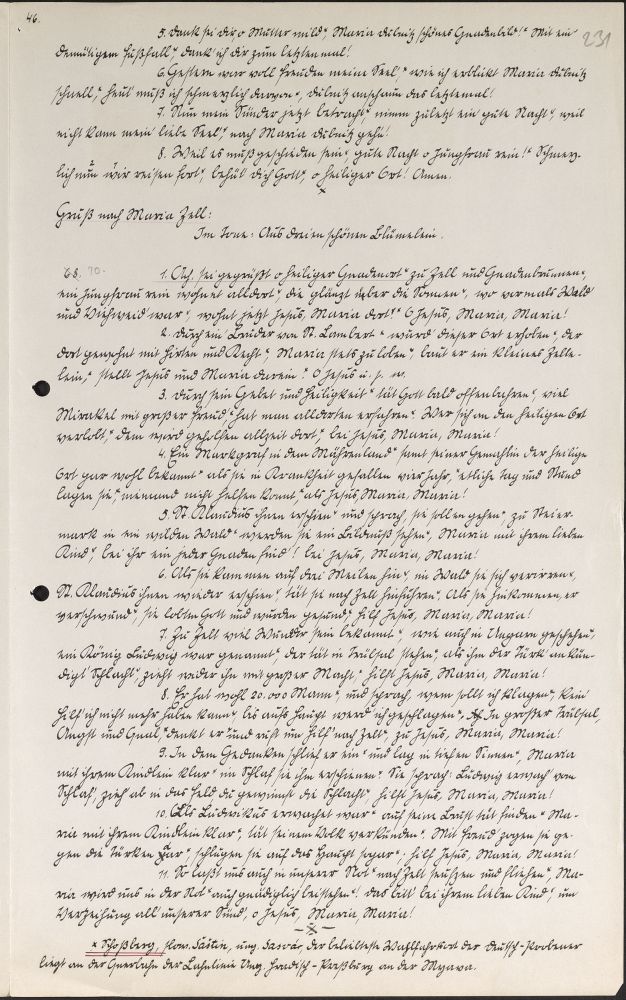 46.
231
5. Dank sei dir, o Mutter mild", Maria dülnitz schönes Gnadenbild!" Mit ein
demütigem Fußfall", dank' ich dir zum letztenmal!
6. Gestern war voll Freuden meine Seel'," wie ich erblickt Maria dülnitz
schnell," heut' muß ich schmerzlich davon," dülnitz anschaun das letztemal!
7. Nun mein Sünder jetzt betracht," nimm zuletzt ein' gute Nacht", weil
nicht kann mein' liebe Seel'," nach Maria dülnitz gehn!
8. Weil es muß geschieden sein," gute Nacht o Jungfrau rein!" Schmerz-
lich nun wir reisen fort", behüt' dich Gott", o heiliger Ort! Amen.
Gruß nach Maria Zell:
Im Tone: Aus dreien schönen Blümelein.
68. 70.
1. Ach, sei gegrüßt o heiliger Gnadenort" zu Zell und Gnadenbrunnen",
ein Jungfrau rein wohnet alldort", die glänzt über die Sonnen", wo vormals Wald
und Viehweid war", wohnt jetzt Jesus, Maria dort!" O Jesus, Maria, Maria!
2. Durch ein' Bruder von St. Lambert" wurd' dieser Ort erhoben", der
dort gewohnt mit Hirten und Knecht", Maria stets zu loben", baut er ein kleines Zelle-
lein," stellt Jesus und Maria darein! O Jesus u. s. w.
3. Durch sein Gebet und Heiligkeit" tät Gott bald offenbahren", viel
Mirakel mit großer Freud" hat man alldorten erfahren". Wer sich an den heiligen Ort
verlobt," dem wird geholfen allzeit dort," bei Jesus, Maria, Maria!
4. Ein Markgraf in dem Mährenland" samt seiner Gemahlin der heilige
Ort gar wohl bekannt" als sie in Krankheit gefallen vier Jahr," etliche Tag und Stund
lagen sie," niemand nicht helfen konnt," als Jesus, Maria, Maria!
5. St. Klaudius ihnen erschien" und sprach, sie sollen gehen" zu Steier-
mark in ein wilden Wald" werden sie ein Bildnuß sehen", Maria mit ihrem lieben
Kind", bei ihr ein jeder Gnaden find'! bei Jesus, Maria, Maria!
6. Als sie kammen auf drei Meilen hin", im Wald sie sich verirren",
St. Klaudius ihnen wieder erschien" tät sie nach Zell hinführen". Als sie hinkommen, er
verschwund", sie lobten Gott und wurden gesund", hilf Jesus, Maria, Maria!
7. Zu Zell viel Wunder sein bekannt", wie auch in Ungarn geschehen",
ein König Ludwig war genannt", der tät in Trübsal stehen", als ihm der Türk' ankün-
digt' Schlacht", zieht wider ihn mit großer Macht," hilft Jesus, Maria, Maria!
8. Er hat wohl 20.000 Mann", und sprach, wem sollt' ich klagen", kein
Hilf' ich nicht mehr haben kann", bis aufs Haupt werd' ich geschlagen". In großer Trübsal,
Angst und Qual" denkt er und ruft um Hilf' nach Zell", zu Jesus, Maria, Maria!
9. In dem Gedanken schlief er ein" und lag in tiefen Sinnen", Maria
mit ihrem Kindlein klar" im Schlaf sie ihm erschienen". Sie sprach: Ludwig erwach vom
Schlaf, zieh ab in das Feld du gewinnst die Schlacht" hilft Jesus, Maria, Maria!
10. Als Ludwikus erwachet war" auf seine Brust tät finden" Ma-
ria mit ihrem Kindlein klar", tät seinem Volk verkünden". Mit Freud' zogen sie ge-
gen die Türken gar" schlugen sie auf das Haupt sogar", hilf Jesus, Maria, Maria!
11. So laßt uns auch in unserer Not" nach Zell seufzen und fliehen". Ma-
ria wird uns in der Not" auch gnädiglich beistehen". das bitt' bei ihrem lieben Kind", um
Verzeihung all' unserer Sünd', o Jesus, Maria, Maria!
x Schoßberg, slow. Šaštin, ung. Sasvár, der beliebteste Wallfahrtsort der Deutsch-Probener
liegt an der Querbahn der Bahnlinie Ung. Hradisch - Preßburg an der Myava.